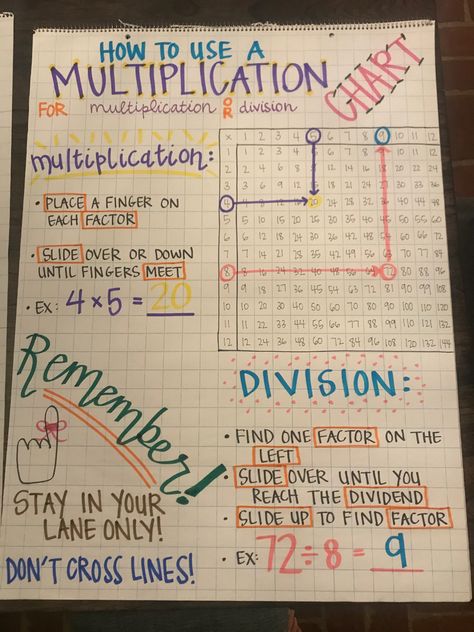 HOW TO USE A
MULTIPLICATION
CHART
FOR multiplication OR division
multiplication:
• PLACE A FINGER ON
EACH FACTOR
• SLIDE OVER OR DOWN
UNTIL FINGERS MEET
• EX: 4 × 5 = 20
x 1 2 3 4 5 6 7 8 9 10 11 12
1 1 2 3 4 6 7 8 10 11 12
2 2 4 6 8 12 14 16 18 20 22 24
3 3 6 9 12 18 21 24 27 30 33 36
4 20 24 28 32 36 40 44 48
5 5 10 15 20 25 30 35 40 45 50 55 60
6 6 12 18 24 30 36 42 48 54 60 66 72
7 14 21 28 35 42 49 56 63 70 77 84
8 8 16 24 32 40 48 56 64 72 80 88 96
9 9 18 27 36 45 54 63 72 81 90 99 108
10 10 20 30 40 50 60 70 80 90 100 110 120
11 11 22 33 44 55 66 77 88 99 110 121 132
12 12 24 36 48 60 72 84 96 108 120 132 144
Remember!
STAY IN YOUR
LANE ONLY!
DON'T CROSS LINES!
DIVISION:
• FIND ONE FACTOR ON THE
LEFT
• SLIDE OVER UNTIL YOU
REACH THE DIVIDEND
• SLIDE UP TO FIND FACTOR
• EX: 72 ÷ 8 = 9